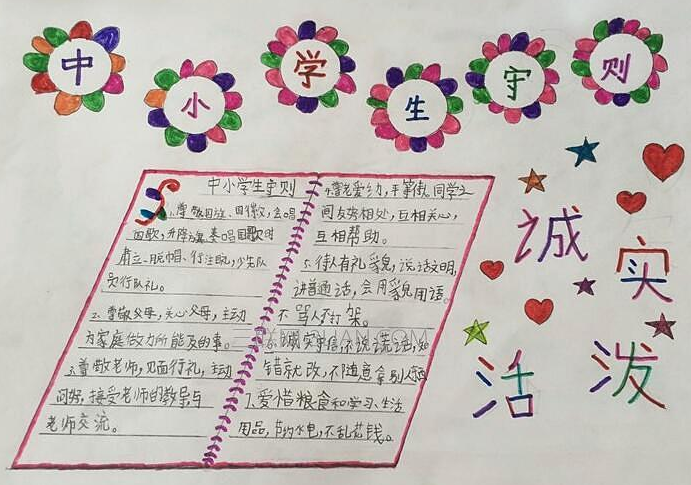 中小学生守则
中小学生守则
1.尊敬国旗、国徽,会唱
国歌,升降旗、奏唱国歌时
肃立、脱帽、行注目礼,少先队
员行队礼。
2.尊敬父母,关心父母,主动
为家庭做力所能及的事。
3.尊敬老师,见面行礼,主动
问好,接受老师的教导,与
老师交流。
4.尊老爱幼,平等待同学之
间友好相处,互相关心,
互相帮助。
5.待人有礼貌,说话文明,
讲普通话,会用礼貌用语。
不骂人不打架。
诚实守信,不说谎话,知
错就改,不随意拿别人
7.爱惜粮食和学习、生活
用品,节约水电,不乱花钱。
诚实
活泼